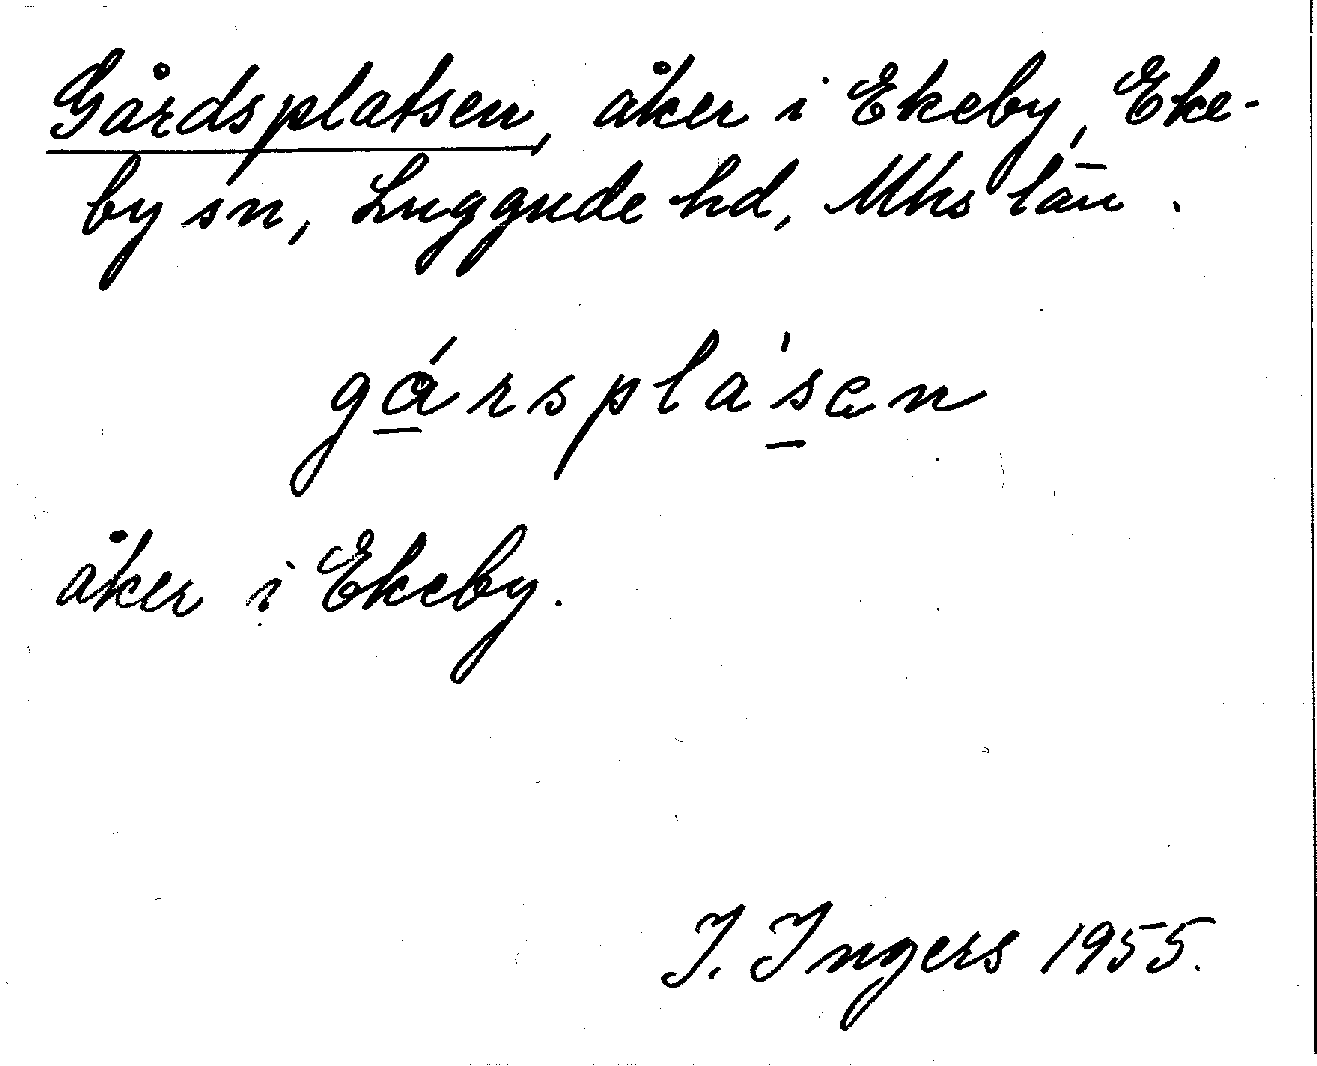 Gårdsplatsen, åker i Ekeby, Eke-
by sn, Luggude hd, Mhs län.
gårsplа'sen
åker i Ekeby.
I. Ingers 1955.